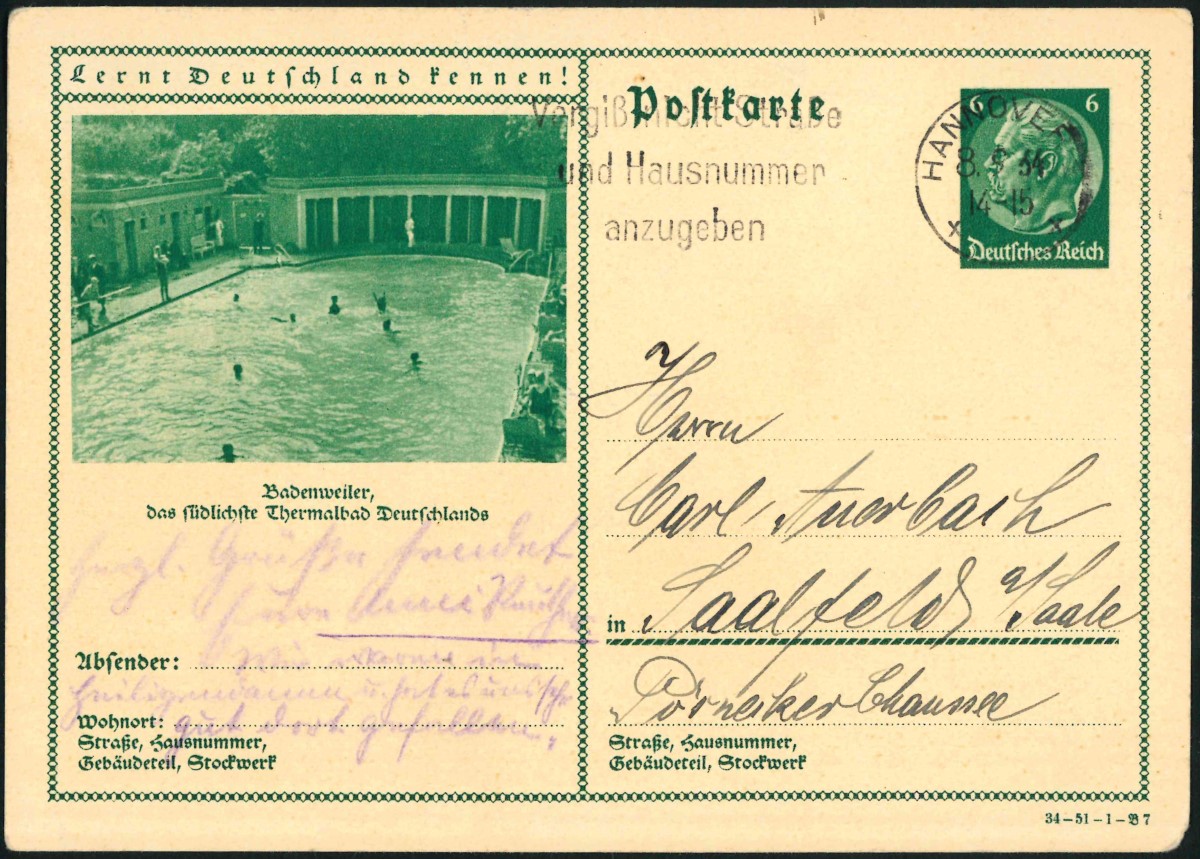 Lernt Deutschland kennen!
Badenweiler,
das südlichste Thermalbad Deutschlands
herzl. Grüße sendet
Anni
Wir waren in
Heiligendamm u. hat es uns sehr
gut dort gefallen.
Absender:
Wohnort:
Straße, Hausnummer,
Gebäudeteil, Stockwerk
Postkarte
Vergiß nicht Straße
und Hausnummer
anzugeben
HANNOVER
8. 34
14-15
x x
6 6
Deutsches Reich
Herrn
Carl Auerbach
in Saalfeld a/Saale
Chaussee
Straße, Hausnummer,
Gebäudeteil, Stockwerk
34-51-1-B7